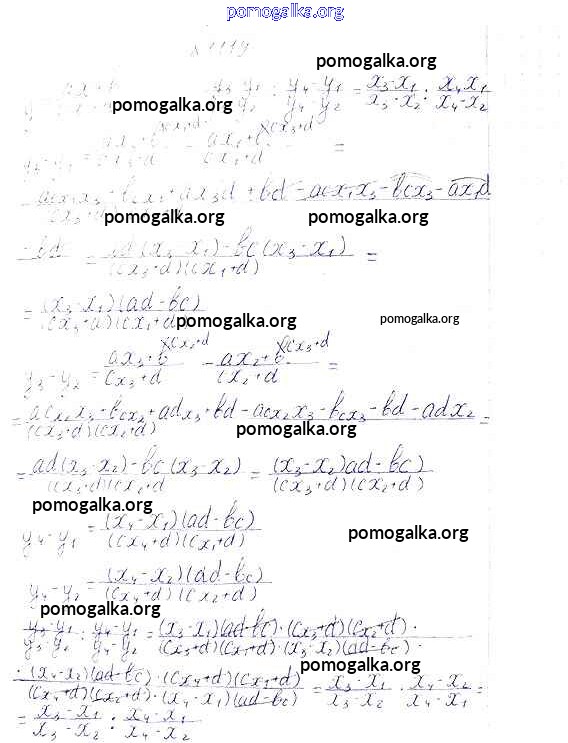 pomogalka.org
№ 1119
pomogalka.org
y = (ax+b)/ : (y₄-y₁)/(y₄-y₂) = (x₃-x₁)/(x₃-x₂) : (x₄-x₁)/(x₄-x₂)
pomogalka.org
y₃-y₁ = (ax₃+b)/(cx₃+d) - (ax₁+b)/(cx₁+d) =
acx₁x₃ + bcx₁ + ax₃d + bd - acx₁x₃ - bcx₃ - ax₁d
pomogalka.org pomogalka.org
-bd = (ad(x₃-x₁) - bc(x₃-x₁))/((cx₃+d)(cx₁+d)) =
= ((x₃-x₁)(ad-bc))/((cx₃+d)(cx₁+d))
pomogalka.org pomogalka.org
y₃-y₂ = (ax₃+b)/(cx₃+d) - (ax₂+b)/(cx₂+d) =
= (acx₂x₃ + bcx₂ + adx₃ + bd - acx₂x₃ - bcx₃ - bd - adx₂)/((cx₃+d)(cx₂+d)) =
pomogalka.org
= (ad(x₃-x₂) - bc(x₃-x₂))/((cx₃+d)(cx₂+d) = ((x₃-x₂)ad-bc))/((cx₃+d)(cx₂+d))
pomogalka.org
y₄-y₁ = ((x₄-x₁)(ad-bc))/((cx₄+d)(cx₁+d))
pomogalka.org
y₄-y₂ = ((x₄-x₂)(ad-bc))/((cx₄+d)(cx₂+d))
pomogalka.org
(y₃-y₁)/(y₃-y₂) : (y₄-y₁)/(y₄-y₂) = ((x₃-x₁)(ad-bc)·(cx₃+d)(cx₂+d))/((cx₃+d)(cx₁+d)·(x₃-x₂)(ad-bc)) ·
pomogalka.org
· ((x₄-x₂)(ad-bc)·(cx₄+d)(cx₁+d))/((cx₄+d)(cx₂+d)·(x₄-x₁)(ad-bc)) = (x₃-x₁)/(x₃-x₂) · (x₄-x₂)/(x₄-x₁) =
= (x₃-x₁)/(x₃-x₂) : (x₄-x₁)/(x₄-x₂)